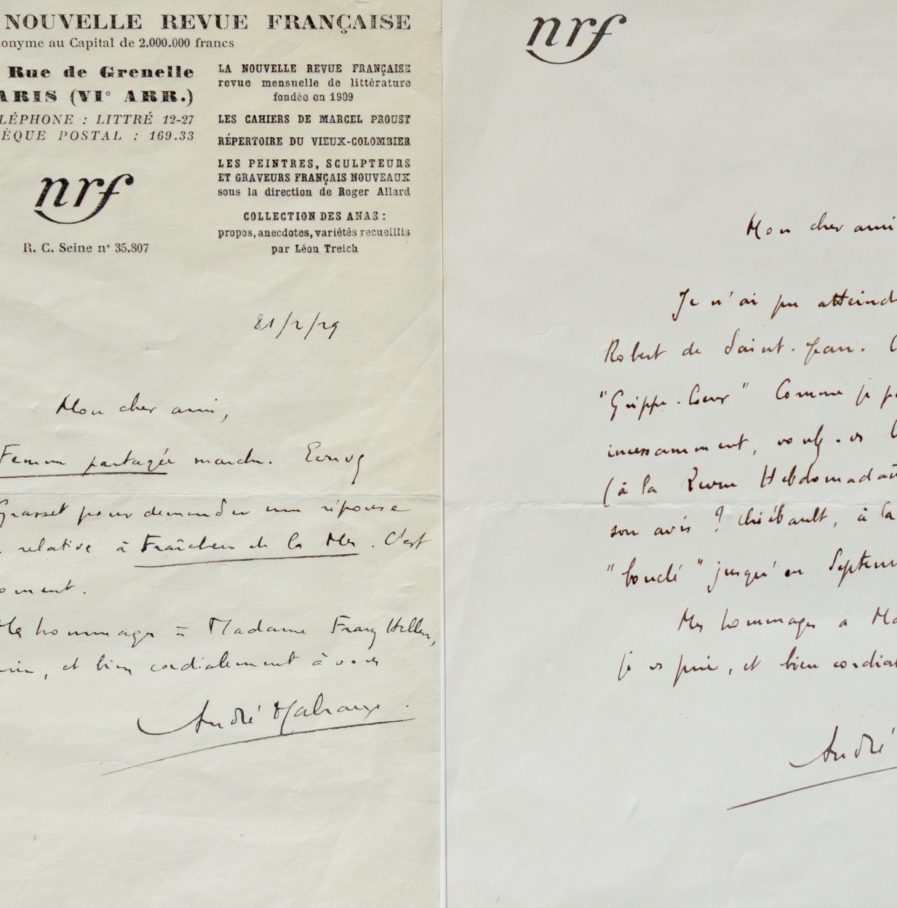 NOUVELLE REVUE FRANÇAISE
onyme au Capital de 2.000.000 francs
Rue de Grenelle
ARIS (VIe ARR.)
LÉPHONE : LITTRÉ 12-27
ÈQUE POSTAL : 169.33
nrf
R. C. Seine n° 35.807
LA NOUVELLE REVUE FRANÇAISE
revue mensuelle de littérature
fondée en 1909
LES CAHIERS DE MARCEL PROUST
RÉPERTOIRE DU VIEUX-COLOMBIER
LES PEINTRES, SCULPTEURS
ET GRAVEURS FRANÇAIS NOUVEAUX
sous la direction de Roger Allard
COLLECTION DES ANAS :
propos, anecdotes, variétés recueillis
par Léon Treich
21/2/29
Mon cher ami,
Femme partagée marche. Ecrivez
Grasset pour demander une réponse
relative à Fraîcheur de la Mer. C'est
oment.
Mes hommages à Madame Franz Hellens,
prie, et bien cordialement à vous
André Malraux.
nrf
Mon cher ami
Je n'ai pu atteind
Robert de Saint-Jean.
"Grippe-Coeur" Comme je p
incessamment, voulez-vs
(à la Revue Hebdomadai
son avis ? Thiébault, à la
"bouclé" jusqu'en Septem
Mes hommages à Ma
je vs prie, et bien cordia
André